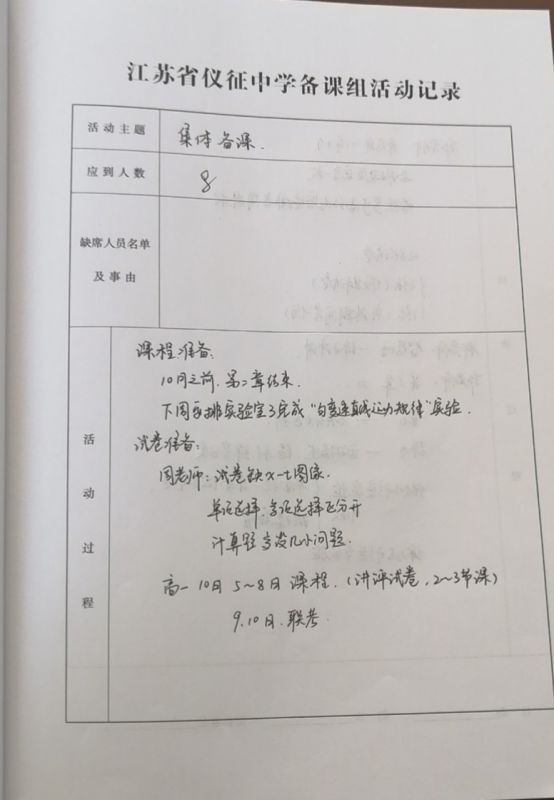 江苏省仪征中学备课组活动记录
活动主题
集体备课.
应到人数
8
缺席人员名单
及事由
活动过程
课程准备:
10月之前.第二章结束.
下周安排实验室3完成"匀变速直线运动规律"实验.
试卷准备:
周老师:试卷缺x-t图像.
单选选择.多选选择区分开
计算题多设几小问题.
高一 10月5~8日课程.(讲评试卷,2~3节课)
9.10日.联考.